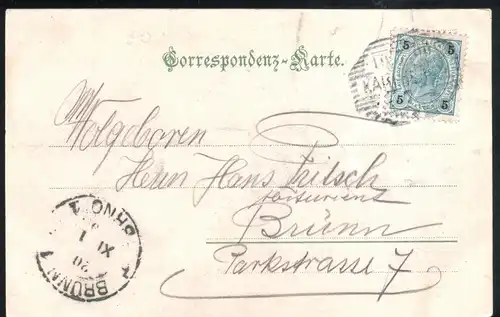 Correspondenz-Karte.
5 5
5 5
Wolgeboren
Herrn Hans Fritsch
Brünn
Parkstrasse 7
BRÜNN 1
BRNO 1